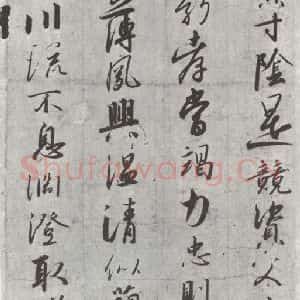 寸陰是競資父
孝當竭力忠則
薄夙興溫清似蘭
川流不息淵澄取
Shufawang.Cn